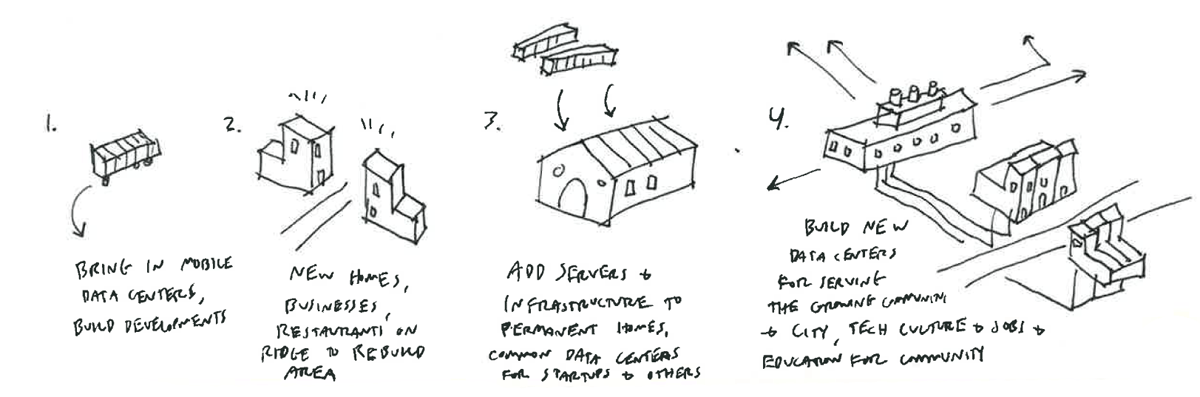 1.
BRING IN MOBILE
DATA CENTERS,
BUILD DEVELOPMENTS
2.
NEW HOMES,
BUSINESSES,
RESTAURANTS ON
RIDGE TO REBUILD
AREA
3.
ADD SERVERS +
INFRASTRUCTURE TO
PERMANENT HOMES,
COMMON DATA CENTERS
FOR STARTUPS + OTHERS
4.
BUILD NEW
DATA CENTERS
FOR SERVING
THE GROWING COMMUNITY
+ CITY, TECH CULTURE + JOBS +
EDUCATION FOR COMMUNITY